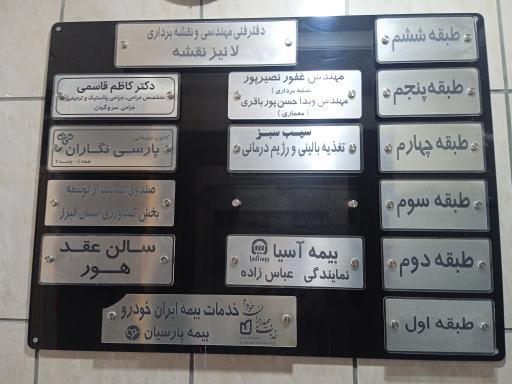 طبقه ششم
دفتر فنی مهندسی و نقشه برداری
لانیز نقشه
طبقه پنجم
مهندس غفور نصیرپور
(نقشه برداری)
مهندس ویدا حسن پور باقری
(معماری)
دکتر کاظم قاسمی
متخصص جراحی،جراحی پلاستیک و ترمیمی
جراحی سر و گردن
طبقه چهارم
سیب سبز
تغذیه بالینی و رژیم درمانی
کانون تبلیغاتی
پارسی نگاران
طبقه ۴ - واحد ۷
طبقه سوم
صندوق حمایت از توسعه
بخش کشاورزی استان البرز
طبقه دوم
بیمه آسیا
بیمه آسیا
نمایندگی عباس زاده
سالن عقد
هور
طبقه اول
خدمات بیمه ایران خودرو
بیمه پارسیان